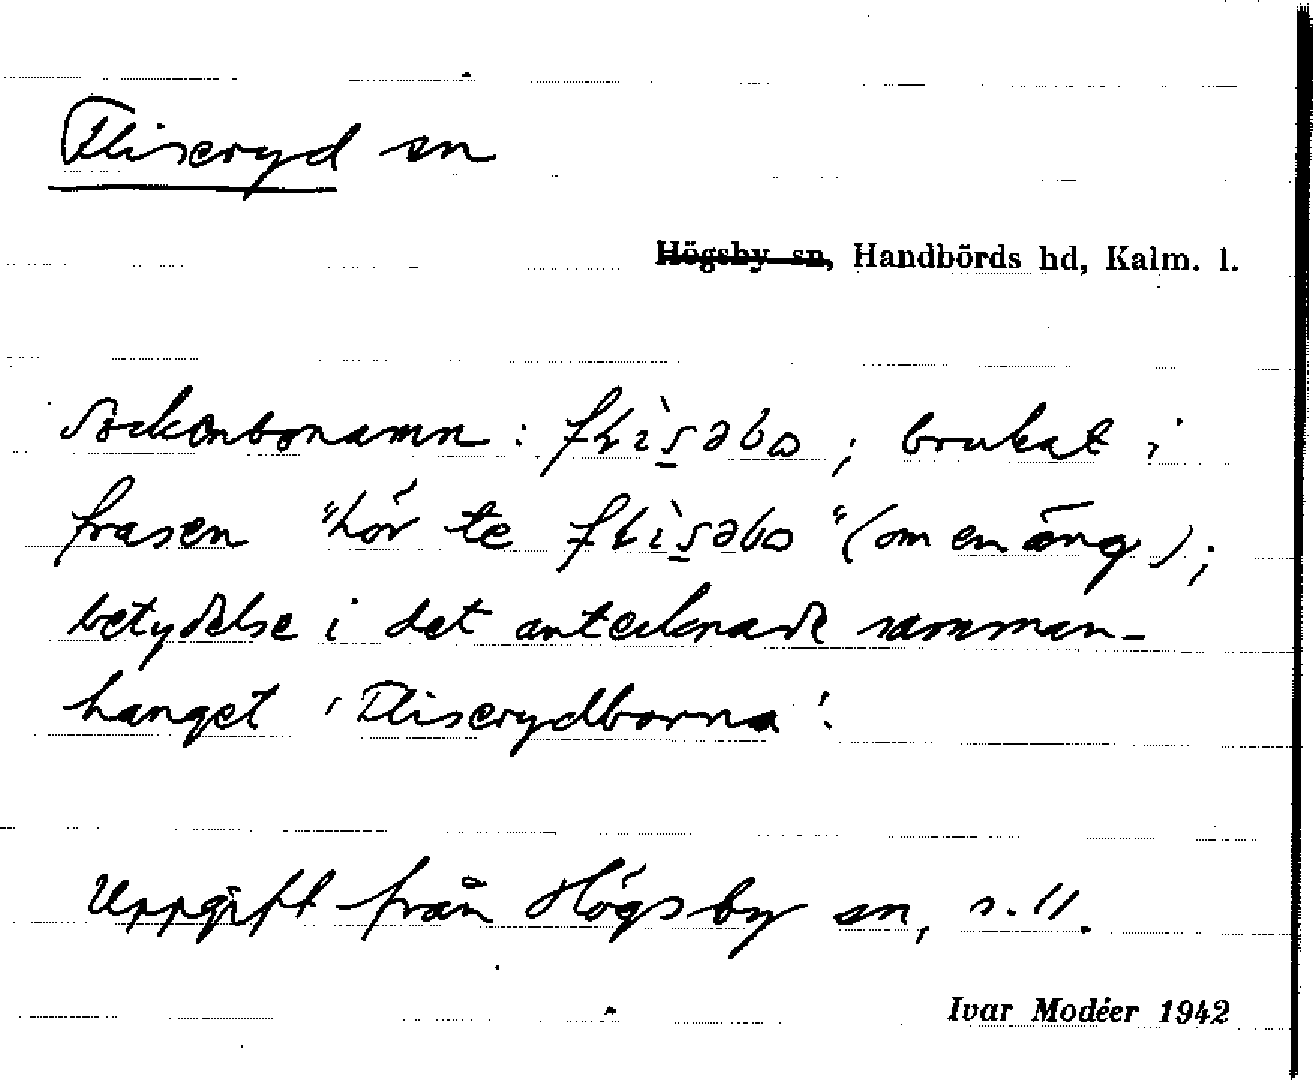 Fliseryd sn
Högsby sn, Handbörds hd, Kalm. l.
Sockenbonamn: flìsəbo; brukat i
frasen "hör te flìsəbo" (om en äng);
betydelse i det antecknade samman-
hanget 'Fliserydborna'.
Uppgift från Högsby sn, s. 11.
Ivar Modéer 1942